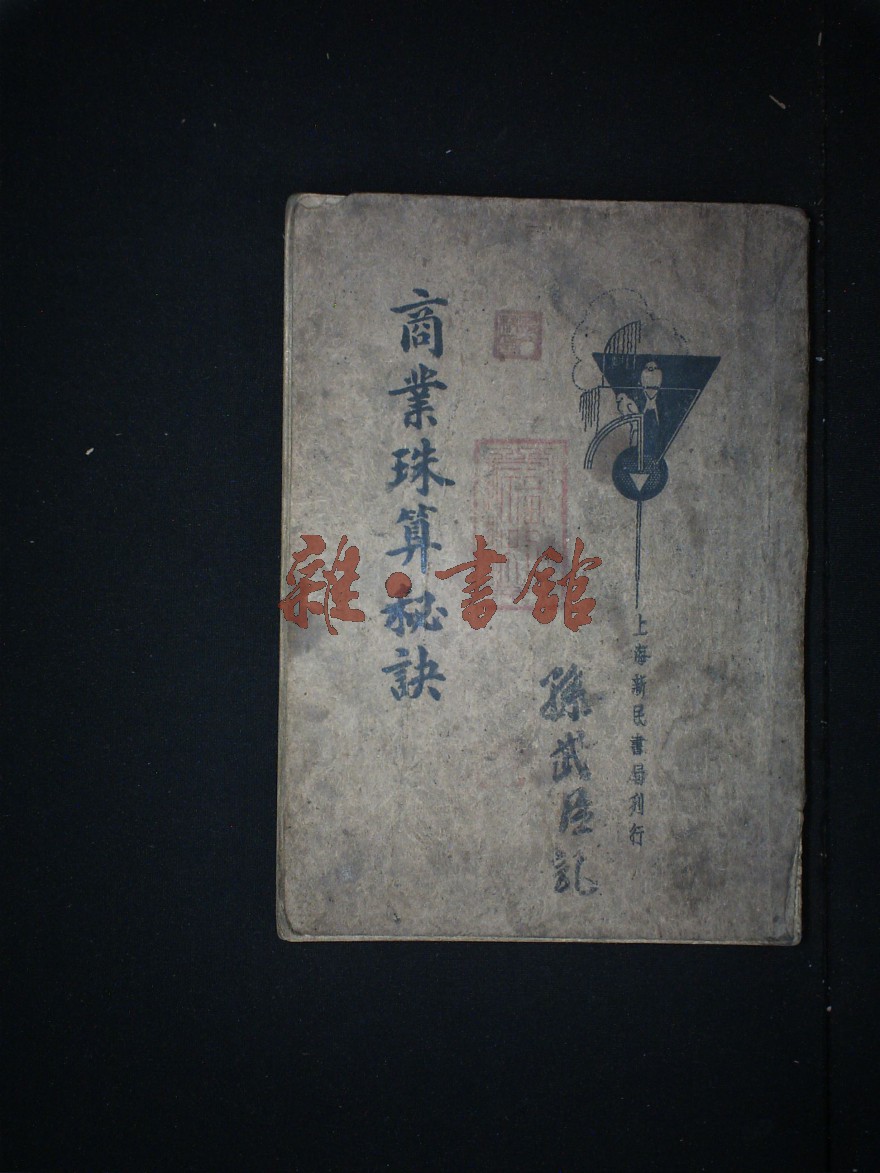 上海新民書局刊行
孫武
記
商業珠算秘訣
雜·書館